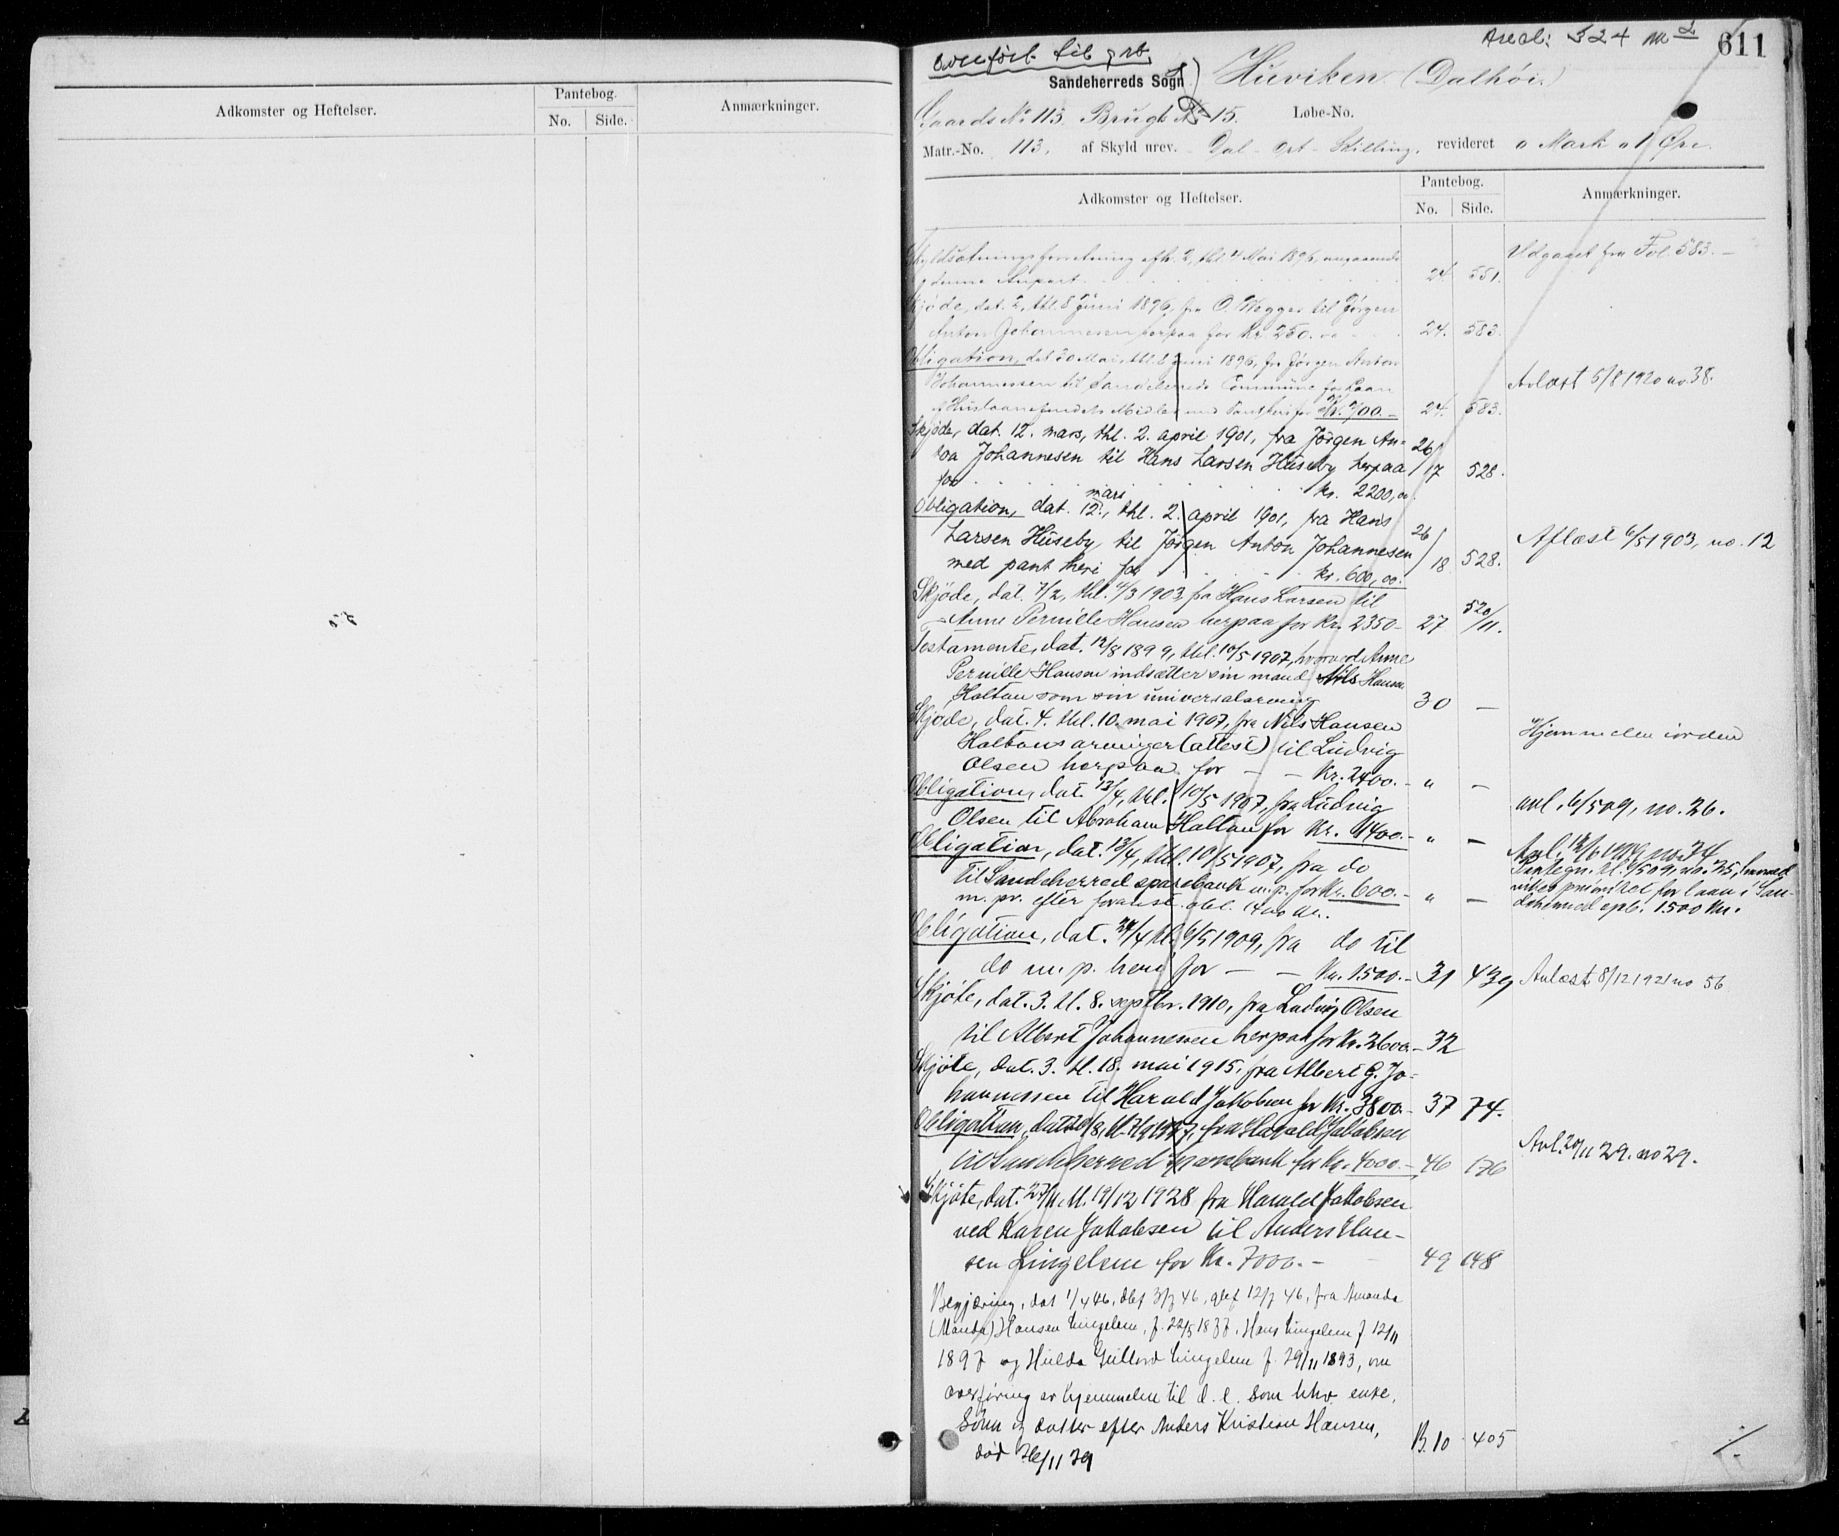 Adkomster og Heftelser.
Pantebog.
No. Side.
Anmærkninger.
Areal: 324 m2
611
overført til grb.
Sandeherreds Sogn) Huviken (Dalhøi.)
Gaards No 113. Brugs No 15. Løbe-No.
Matr.-No. 113. af Skyld urev. - Dal - Ort - Skilling, revideret 0 Mark 01 Øre.
Adkomster og Heftelser.
Pantebog.
No. Side.
Anmærkninger.
Skyldsætningsforretning afh. 2, thl 4 Mai 1896, angaaende
denne Anpart . . . 24. 551.
Udgaaet fra Fol 583. -
Skjøde, dat. 2, thl 8 Juni 1896, fra O. Wegger til Jørgen
Anton Johannesen herpaa for Kr. 250. 00 24. 583.
Obligation, dat 30 Mai, thl 8 Juni 1896, fra Jørgen Anton
Johannessen til Sandeherreds Commune for Laan
af Huslaanefondets Midler med Pant heri for Kr. 700.- 24. 583.
Avlæst 5/8 1920 no 38.
Skjøde, dat. 12. mars, thl. 2. april 1901, fra Jørgen An=
ton Johannesen til Hans Larsen Huseby herpaa 26/17 528.
for . . . kr. 2200,00.
Obligation, dat. 12. mars, thl. 2. april 1901, fra Hans
Larsen Huseby til Jørgen Anton Johannesen 26/18 528.
med pant heri for . . . kr. 600,00.
Aflæst 6/5 1903, no. 12
Skjøde, dat. 7/2, thl. 4/3 1903 fra Hans Larsen til
Anne Pernille Hansen herpaa for Kr. 2350- 27 520/11.
Testamente, dat. 12/8 1899, thl. 10/5 1907, hvorved Anne
Pernille Hansen indsætter sin mand Nils Hansen
Holtan som sin universalarving 30 -
Skjøde, dat. 4. thl. 10. mai 1907, fra Nils Hansen
Holtans arvinger (attest) til Ludvig
Olsen herpaa for - - Kr. 2400.- " -
Hjemmelen iorden
Obligation, dat. 13/4, thl. 10/5 1907, fra Ludvig
Olsen til Abraham Holtan for Kr. 1400.- " -
avl. 6/5 09, no. 26.
Obligation, dat. 13/4, thl. 10/5 1907, fra do
til Sandeherred sparebank m. p. for Kr. 600.- " -
m. pr. efter foranst. obl. 1400 kr.
Avl. 12/6 1919 no 34
Paategn. tl. 6/5 09, no. 25, hvorved
viker prioritet for laan i San-
deherred spb. 1500 Kr.
Obligation, dat. 24/4 tl. 6/5 1909, fra do til
do m. p. heri for - - Kr. 1500.- 31 439
Avlæst 8/12 1921 no 56
Skjøte, dat. 3. tl. 8. septbr. 1910, fra Ludvig Olsen
til Albert Johannessen herpaa for Kr. 3600.- 32
Skjøte, dat. 3. tl. 18. mai 1915, fra Albert G. Jo-
hannessen til Harald Jakobsen for Kr. 3800.- 37 74.
Obligation, fra Harald Jakobsen
til Sandeherred sparebank for Kr. 4000.- 46 176
Avl. 20/11 29. no 29.
Skjøte, dat. 27/11, tl. 19/12 1928 fra Harald Jakobsen
ved Karen Jakobsen til Anders Han-
sen Lingelem for Kr. 7000.- 49 148
Begjæring, dat 1/4 46, dbf 3/7 46, glef 12/7 46, fra Amanda
(Manda) Hansen Lingelem, f. 22/5 1837, Hans Lingelem f 12/11
1897 og Hulda Lingelem f. 29/11 1893, om
overføring av hjemmelen til d. e. som hhv. enke,
sønn og datter efter Anders Kristian Hansen,
død 26/11 39 B.10 405